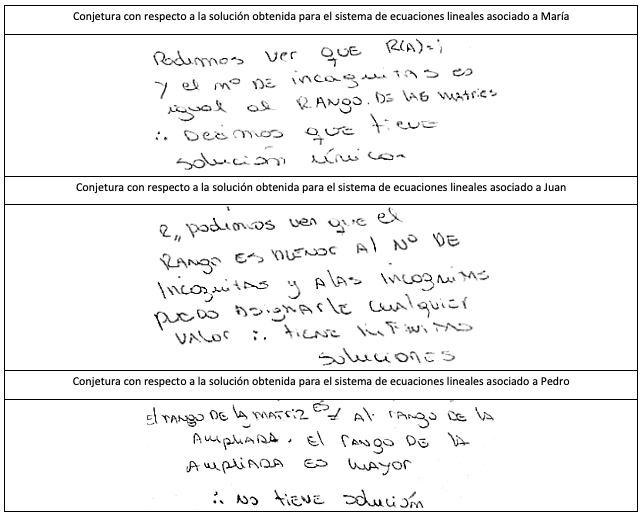 Conjetura con respecto a la solución obtenida para el sistema de ecuaciones lineales asociado a María
Podemos ver QUE R(A)=
y el nº DE incognitas es
igual al RANGO. DE las matrices
∴ Decimos QUE tiene
solución única
Conjetura con respecto a la solución obtenida para el sistema de ecuaciones lineales asociado a Juan
podimos ver que el
RANGO ES MENOR Al Nº DE
Incognitas y A las Incognitas
puedo Asignarle cualquier
valor ∴ tiene Infinitas
soluciones
Conjetura con respecto a la solución obtenida para el sistema de ecuaciones lineales asociado a Pedro
El rango De la matriz es ≠ Al rango DE la
AmpliADA. El rango DE la
AmpliADA es mayor
∴ NO tiene solución